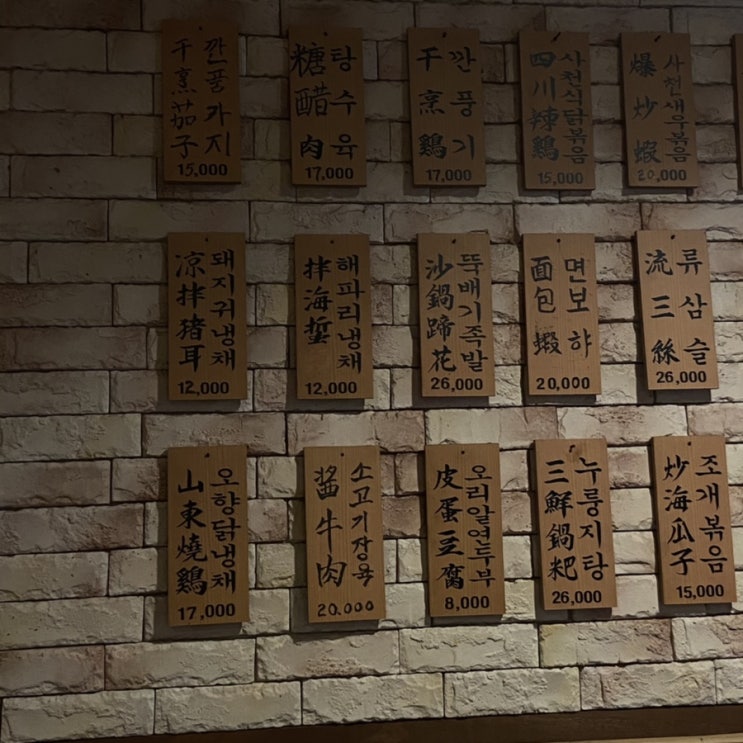 干烹茄子
깐풍가지
15,000
糖醋肉
탕수육
17,000
干烹鷄
깐풍기
17,000
四川辣鷄
사천식닭볶음
15,000
爆炒蝦
사천새우볶음
20,000
凉拌猪耳
돼지귀냉채
12,000
拌海蜇
해파리냉채
12,000
沙鍋蹄花
뚝배기족발
26,000
面包蝦
면보하
20,000
流三絲
류삼슬
26,000
山東燒鷄
오향닭냉채
17,000
醬牛肉
소고기장육
20.000
皮蛋豆腐
오리알연두부
8,000
三鮮鍋粑
누룽지탕
26,000
炒海瓜子
조개볶음
15,000